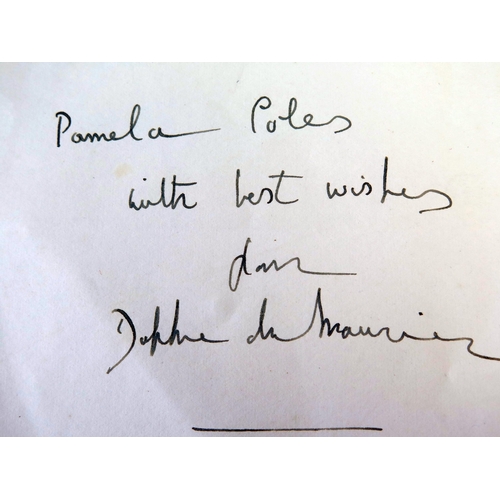 Pamela Poles
with best wishes
from
Daphne du Maurier